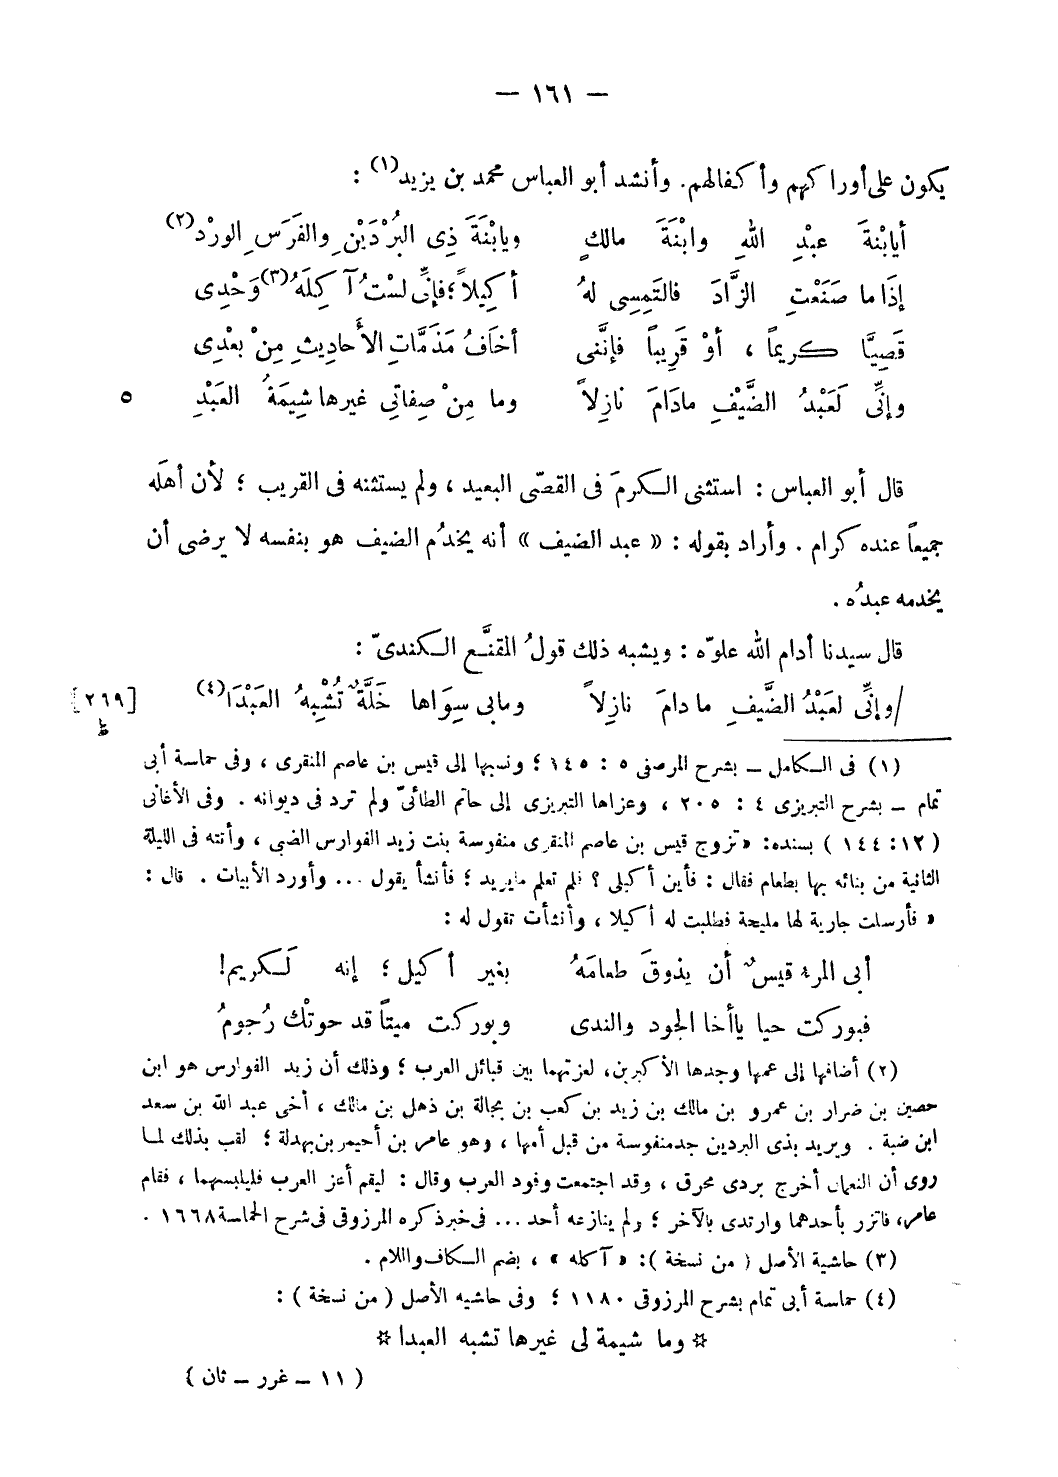 — ١٦١ —
يكون على أوراكهم وأكفالهم. وأنشد أبو العباس محمد بن يزيد(١) :
أيابْنةَ عبْدِ اللهِ وابْنَةَ مالكٍ ويابْنَةَ ذِى البُرْدَيْنِ والفَرَسِ الورْد(٢)
إذَا ما صَنَعْتِ الزَّادَ فالتَمِسِى لهُ أكِيلاً؛ فإنِّى لسْتُ آكِلَهُ(٣) وَحْدِى
قَصِيًّا كريماً ، أوْ قَرِيباً فإنَّنى أخَافُ مَذَمَّاتِ الأَحادِيثِ مِنْ بعْدِى
وإنِّى لَعَبْدُ الضَّيْفِ مادَامَ نازِلاً وما مِنْ صِفاتِى غيرها شِيمَةُ العَبْدِ ٥
قال أبو العباس : استثنى الكرمَ فى القصّى البعيد ، ولم يستثنه فى القريب ؛ لأن أهلَه
جميعاً عنده كرام . وأراد بقوله : « عبد الضيف » أنه يخدُم الضيف هو بنفسه لا يرضى أن
يخدمه عبدُه .
قال سيدنا أدام الله علوّه : ويشبه ذلك قولُ المقنَّع الكندىّ :
/وإنِّى لعَبْدُ الضَّيفِ ما دامَ نازِلاً ومابى سِوَاها خَلَّةٌ تُشْبِهُ العَبْدَا(٤) [٢٦٩]
ظ
(١) فى الكامل — بشرح المرصفى ٥ : ١٤٥ ؛ ونسبها إلى قيس بن عاصم المنقرى ، وفى حماسة أبى
تمام — بشرح التبريزى ٤ : ٢٠٥ ، وعزاها التبريزى إلى حاتم الطائىّ ولم ترد فى ديوانه . وفى الأغانى
( ١٢ : ١٤٤ ) بسنده : « تزوج قيس بن عاصم المنقرى منفوسة بنت زيد الفوارس الضبى ، وأتته فى الليلة
الثانية من بنائه بها بطعام فقال : فأين أكيلى ؟ فلم تعلم مايريد ؛ فأنشأ يقول ... وأورد الأبيات . قال :
« فأرسلت جارية لها مليحة فطلبت له أكيلا ، وأنشأت تقول له :
أبى المرء قيسٌ أن يذوقَ طعامَهُ بغير أكيل ؛ إنه لَكريم!
فبوركت حيا ياأخا الجود والندى وبوركت ميتاً قد حوتْك رُجومُ
(٢) أضافها إلى عمها وجدها الأكبرين، لعزتهما بين قبائل العرب ؛ وذلك أن زيد الفوارس هو ابن
حصين بن ضرار بن عمرو بن مالك بن زيد بن كعب بن بجالة بن ذهل بن مالك ، أخى عبد الله بن سعد
ابن ضبة . ويريد بذى البردين جد منفوسة من قبل أمها ، وهو عامر بن أحيمر بن بهدلة ؛ لقب بذلك لما
روى أن النعمان أخرج بردى محرق ، وقد اجتمعت وفود العرب وقال : ليقم أعز العرب فليلبسهما ، فقام
عامر، فاتزر بأحدهما وارتدى بالآخر ؛ ولم ينازعه أحد ... فى خبر ذكره المرزوقى فى شرح الحماسة ١٦٦٨ .
(٣) حاشية الأصل ( من نسخة ) : « آكله » ، بضم الكاف واللام .
(٤) حماسة أبى تمام بشرح المرزوقى ١١٨٠ ؛ وفى حاشيه الأصل ( من نسخة ) :
* وما شيمة لى غيرها تشبه العبدا *
( ١١ — غرر — ثان )